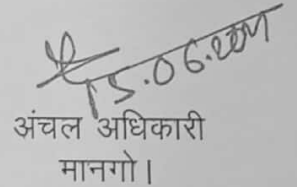 15.06.2021
अंचल अधिकारी
मानगो।